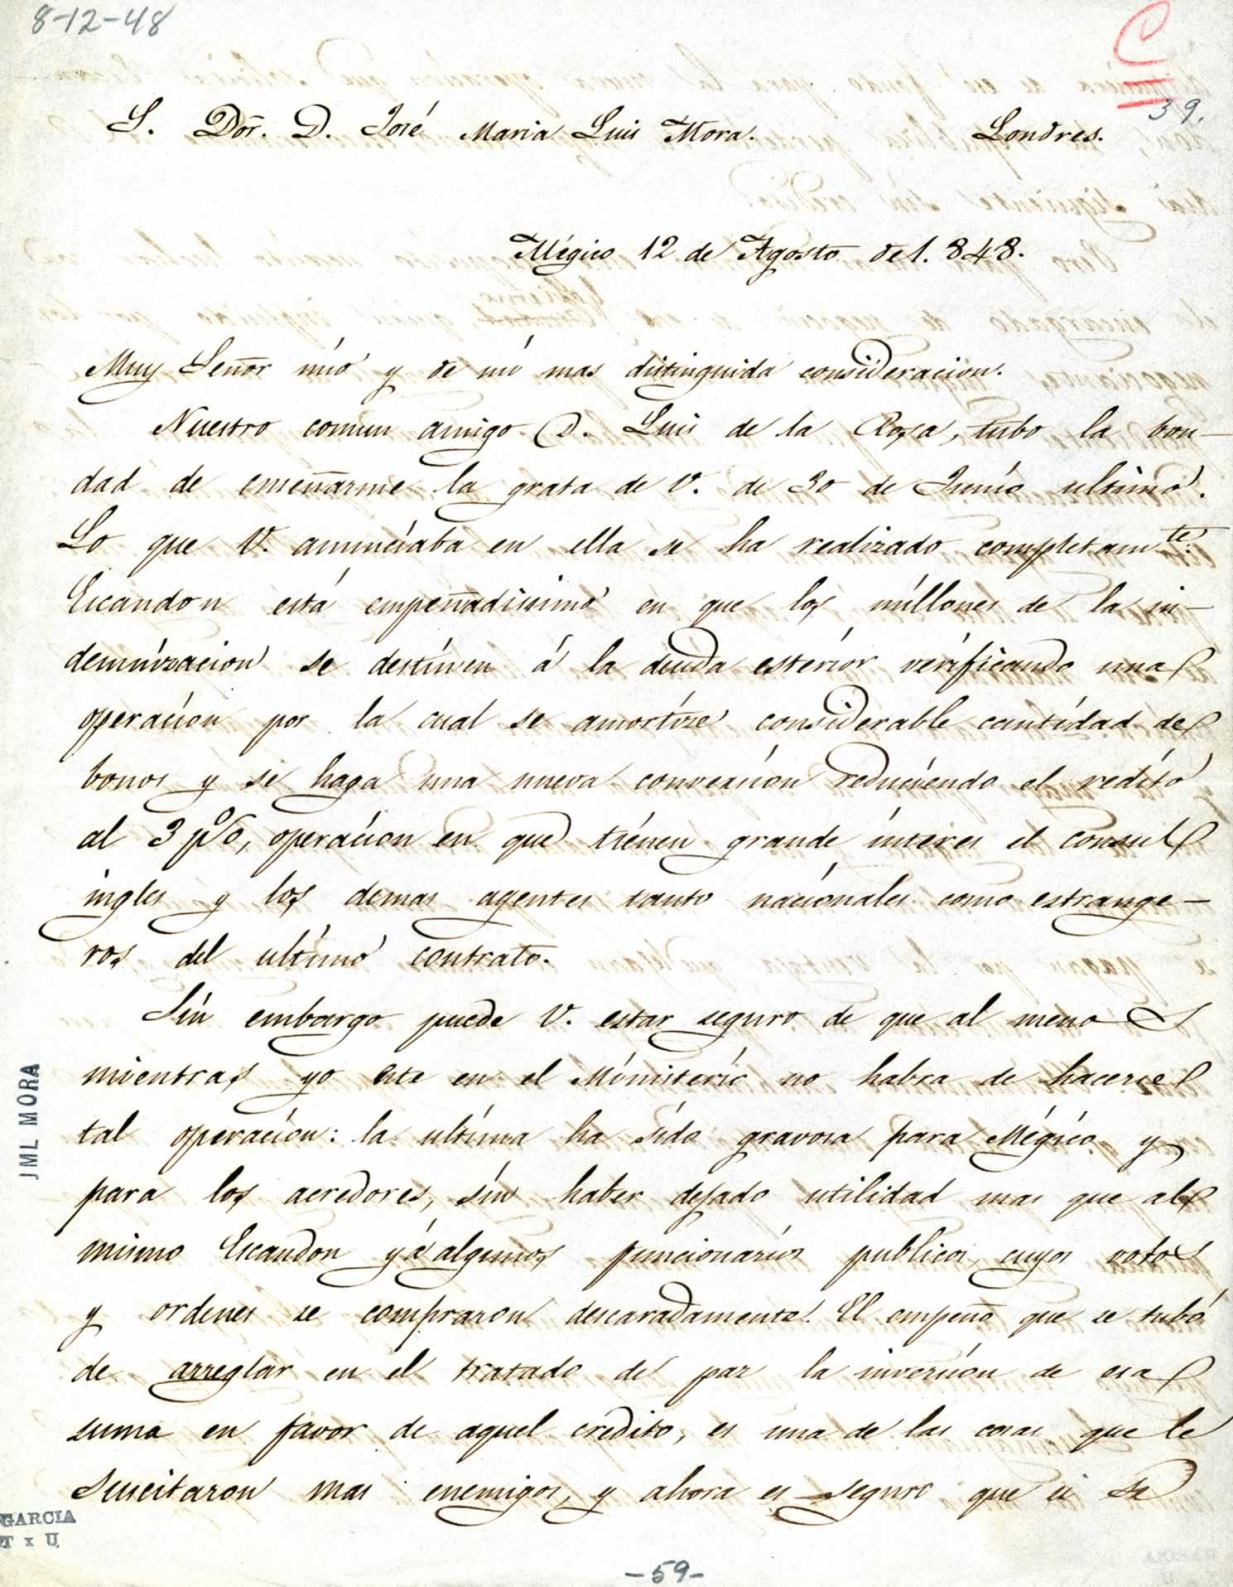 8-12-48
C
39.
S. Dor. D. José Maria Luis Mora. Londres.
Mégico 12 de Agosto de 1.848.
Muy Señor mio y de mi mas distinguida consideracion.
Nuestro comun amigo D. Luis de la Rosa, tubo la bon-
dad de enseñarme la grata de V. de 30 de Junio ultimo.
Lo que V. anunciaba en ella se ha realizado completamte.
Escandon está empeñadisimo en que los millones de la in-
demnizacion se destinen á la deuda esterior verificando una
operacion por la cual se amortize considerable cantidad de
bonos y se haga una nueva conversion reduciendo el redito
al 3 p%, operacion en que tienen grande interes el consul
ingles y los demas agentes tanto nacionales como estrange-
ros del ultimo contrato.
Sin embargo puede V. estar seguro de que al menos
mientras yo este en el Ministerio no habra de hacerse
tal operacion: la ultima ha sido gravosa para Mégico y
para los acredores, sin haber dejado utilidad mas que al
mismo Escandon y á algunos funcionarios publicos, cuyos votos
y ordenes se compraron descaradamente. El empeño que se tubo
de arreglar en el tratado de paz la inversion de esa
suma en favor de aquel credito, es una de las cosas que le
suscitaron mas enemigos, y ahora es seguro que si se
JML MORA
GARCIA
T x U
-59-